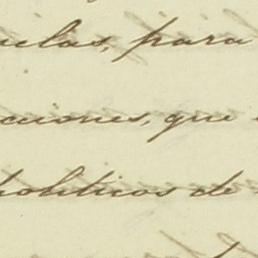 uelas, para
aciones, que
politicos de